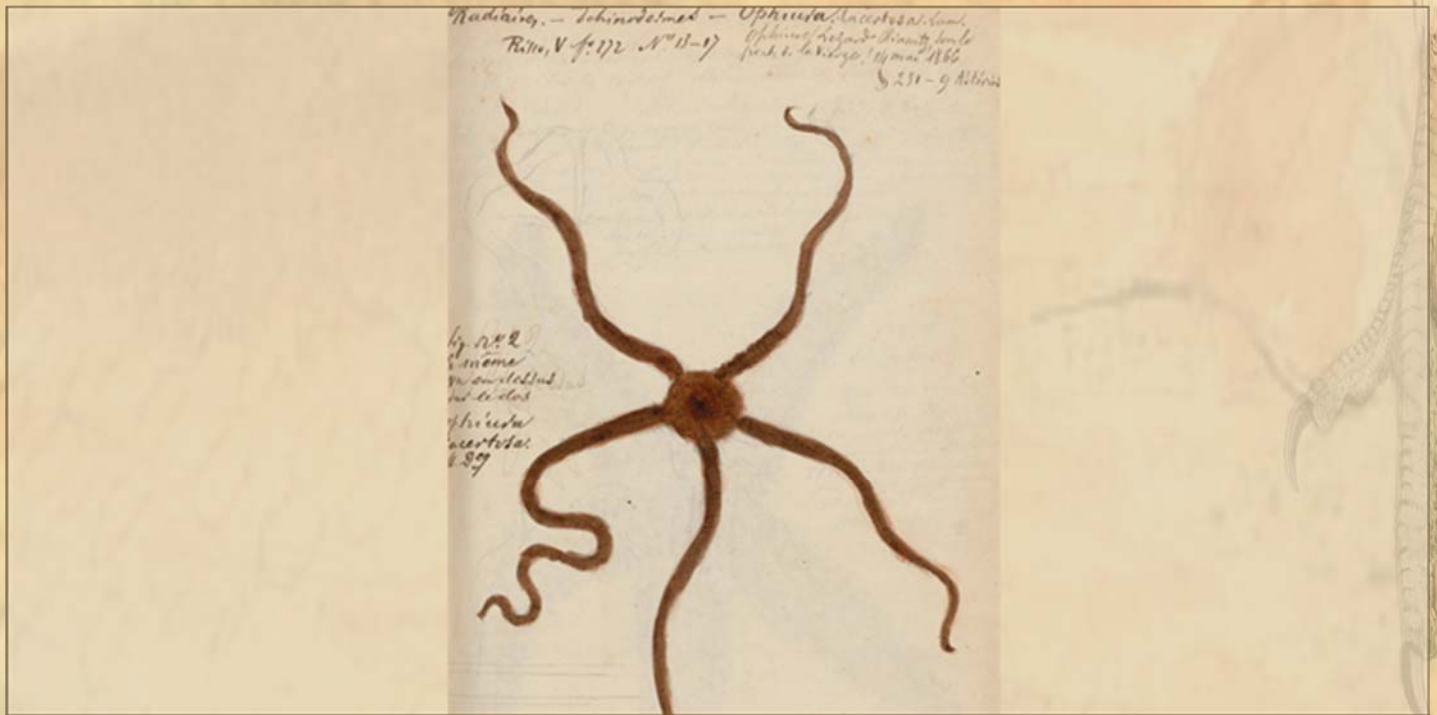 Radiaires. — Echinodermes — Ophiura lacertosa. Lam.
Risso, V fo: 272 Nos 13-17
Ophiure Lézard Biarritz sous le
port de la Vierge! 14 mai 1866
230 - 9 Astéries
fig. no. 2
même
vu en dessus
sur le dos
ophiura
lacertosa.